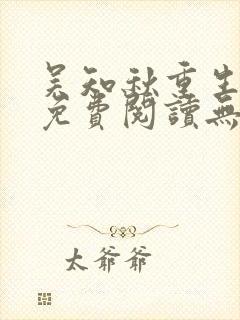 吴知秋重生
免費閱讀無
太爺爺